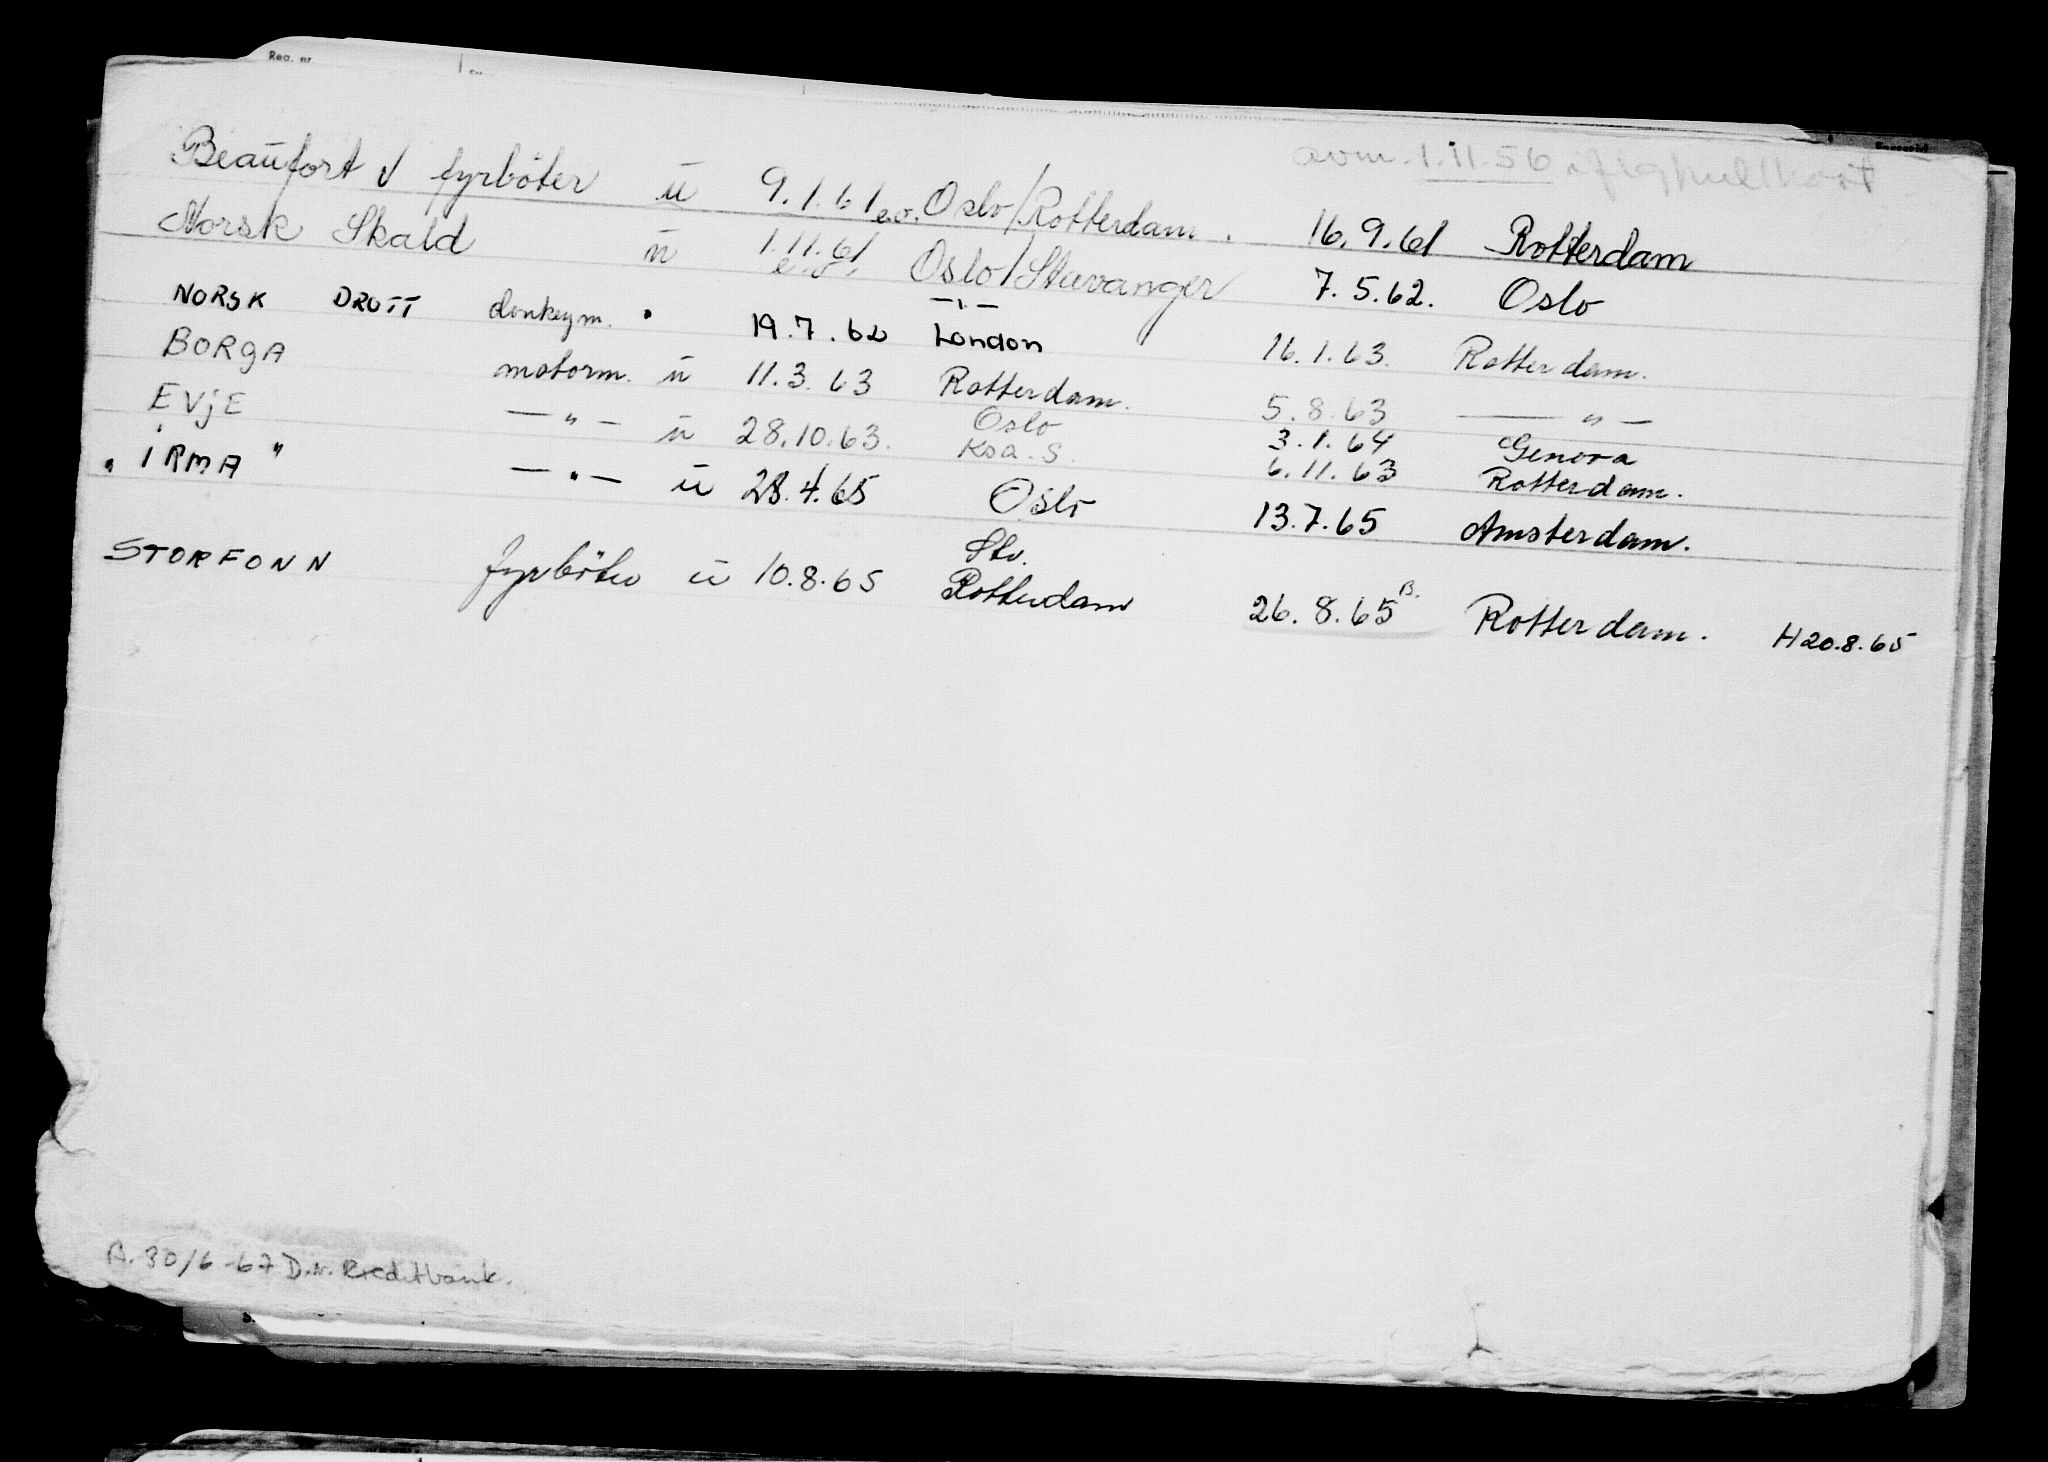 Reg. nr.
avm. 1.11.56 iflg hullkort
Beaufort √ fyrböter u 9.1.61 e.o. Oslo/Rotterdam. 16.9.61 Rotterdam
Norsk Skald u 1.11.61 e.o. Oslo/Stavanger 7.5.62. Oslo
NORSK DROTT donkeym. " 19.7.62 — " — London 16.1.63. Rotterdam.
BORGA motorm. u 11.3.63 Rotterdam. 5.8.63 — " —
EVJE — " — u 28.10.63. Oslo 3.1.64 Genova
6.11.63 Rotterdam.
"IRMA" — " — u 28.4.65 Oslo 13.7.65 Amsterdam.
STORFONN fyrböter u 10.8.65 Stv. Rotterdam 26.8.65 B. Rotterdam. H20.8.65
A. 30/6-67 D.n. Kreditbank.